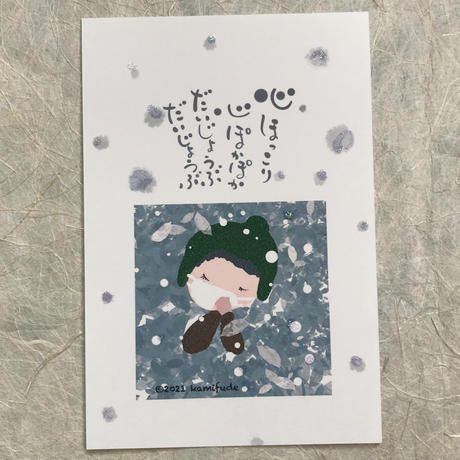 心ほっこり
心ぽかぽか
だいじょうぶ
だいじょうぶ
©2021 kamifude